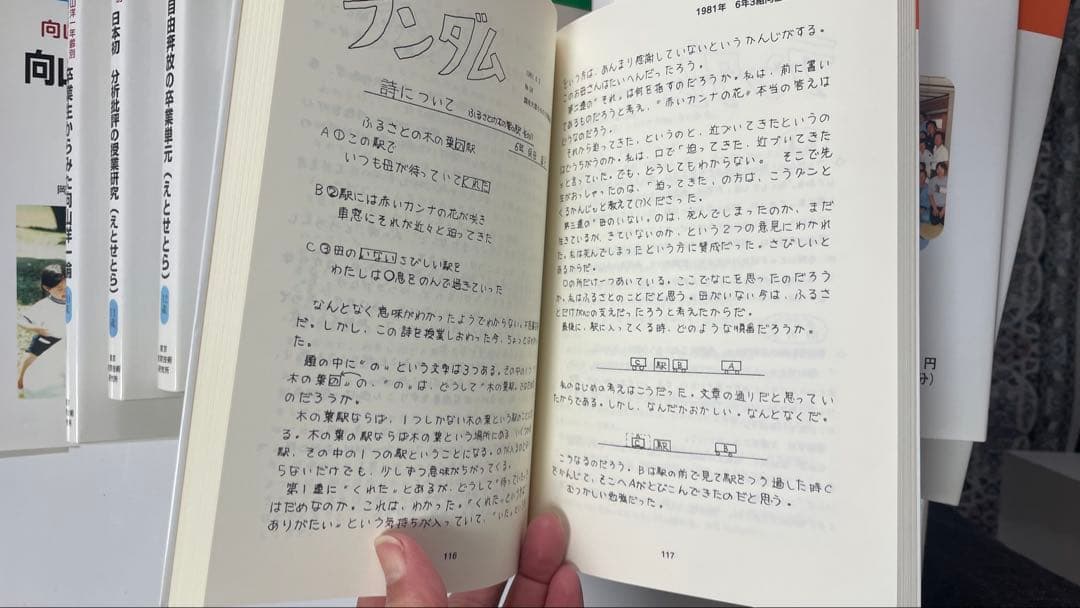 向山
向山
山洋一年齢別
卒業生からみた向山洋一論
日本初 分析批評の授業研究（えとせとら）
11歳
自由奔放の卒業単元（えとせとら）
12歳
東京
教育技術
研究所
ランダム
詩について
ふるさとの木の葉の駅
6年
ふるさとの木の葉の駅
A①この駅で
いつも母が待っていてくれた
B②駅には赤いカンナの花が咲き
車窓にそれが近々と迫ってきた
C③母のいないさびしい駅を
わたしは〇息をのんで過ぎていった
なんとなく意味がわかったようでわからない
だ。しかし、この詩を授業しおわった今、ちょっと
た。
題の中に“の”という文字は3つある。その中の1つ
木の葉の“の、“の”は、どうして“木の葉駅。
のだろうか。
木の葉駅ならば、1つしかない木の葉という駅のことに
る。木の葉の駅ならば木の葉という場所にある、いくつか
駅、その中の1つの駅ということになる。のが入る
らないだけでも、少しずつ意味がちがってくる。
第1連に“くれた”とあるが、どうして“待っていた
はだめなのか。これは、わかった。“くれた”という
ありがたい”という気持ちが入っていて、“いた”
116
1981年 6年3組
という方は、あんまり感謝していないというかんじがする。
このお母さんはたいへんだったろう。
第二連の“それ”は何を指すのだろうか。私は、前に書い
てあるものだろうと考え、“赤いカンナの花”。本当の答えは
どうなのだろう。
それから迫ってきた、というのと、近づいてきたというの
はどうちがうのか。私は、口で「迫ってきた、近づいてきた
っと言っていた。でも、どうしてもわからない。 そこで先
生がおっしゃったのは、「迫ってきた」の方は、こうググーンと
くるかんじ。と教えて(?)くださった。
第三連の“母のいない”のは、死んでしまったのか、まだ
生きているが、きていないのか、という2つの意見にわかれ
た。私は死んでしまったという方に賛成だった。さびしいと
あるからだ。
〇の所だけ一つあいている。ここでなにを思ったのだろう
か。私はふるさとのことだと思う。母がいない今は、ふるさ
とだけが心の支えだったろうと考えたからだ。
最後に、駅に入ってくる時、どのような順番だろうか。
C 駅 B A
私のはじめの考えはこうだった。文章の通りだと思ってい
たからである。しかし、なんだかおかしい。なんとなくだ。
C 駅 B
こうなるのだろう。Bは駅の前で見て駅をつう過した時C
でかんじて、そこへAがとびこんできたのだと思う。
むつかしい勉強だった。
117
円
分)